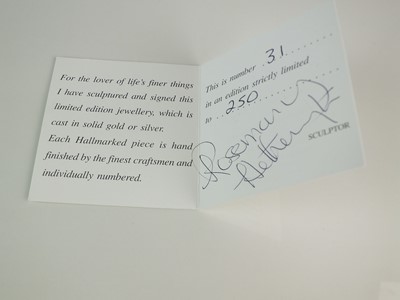 For the lover of life's finer things
I have sculptured and signed this
limited edition jewellery, which is
cast in solid gold or silver.
Each Hallmarked piece is hand
finished by the finest craftsmen and
individually numbered.
This is number 31
in an edition strictly limited
to 250
Rosemary
SCULPTOR